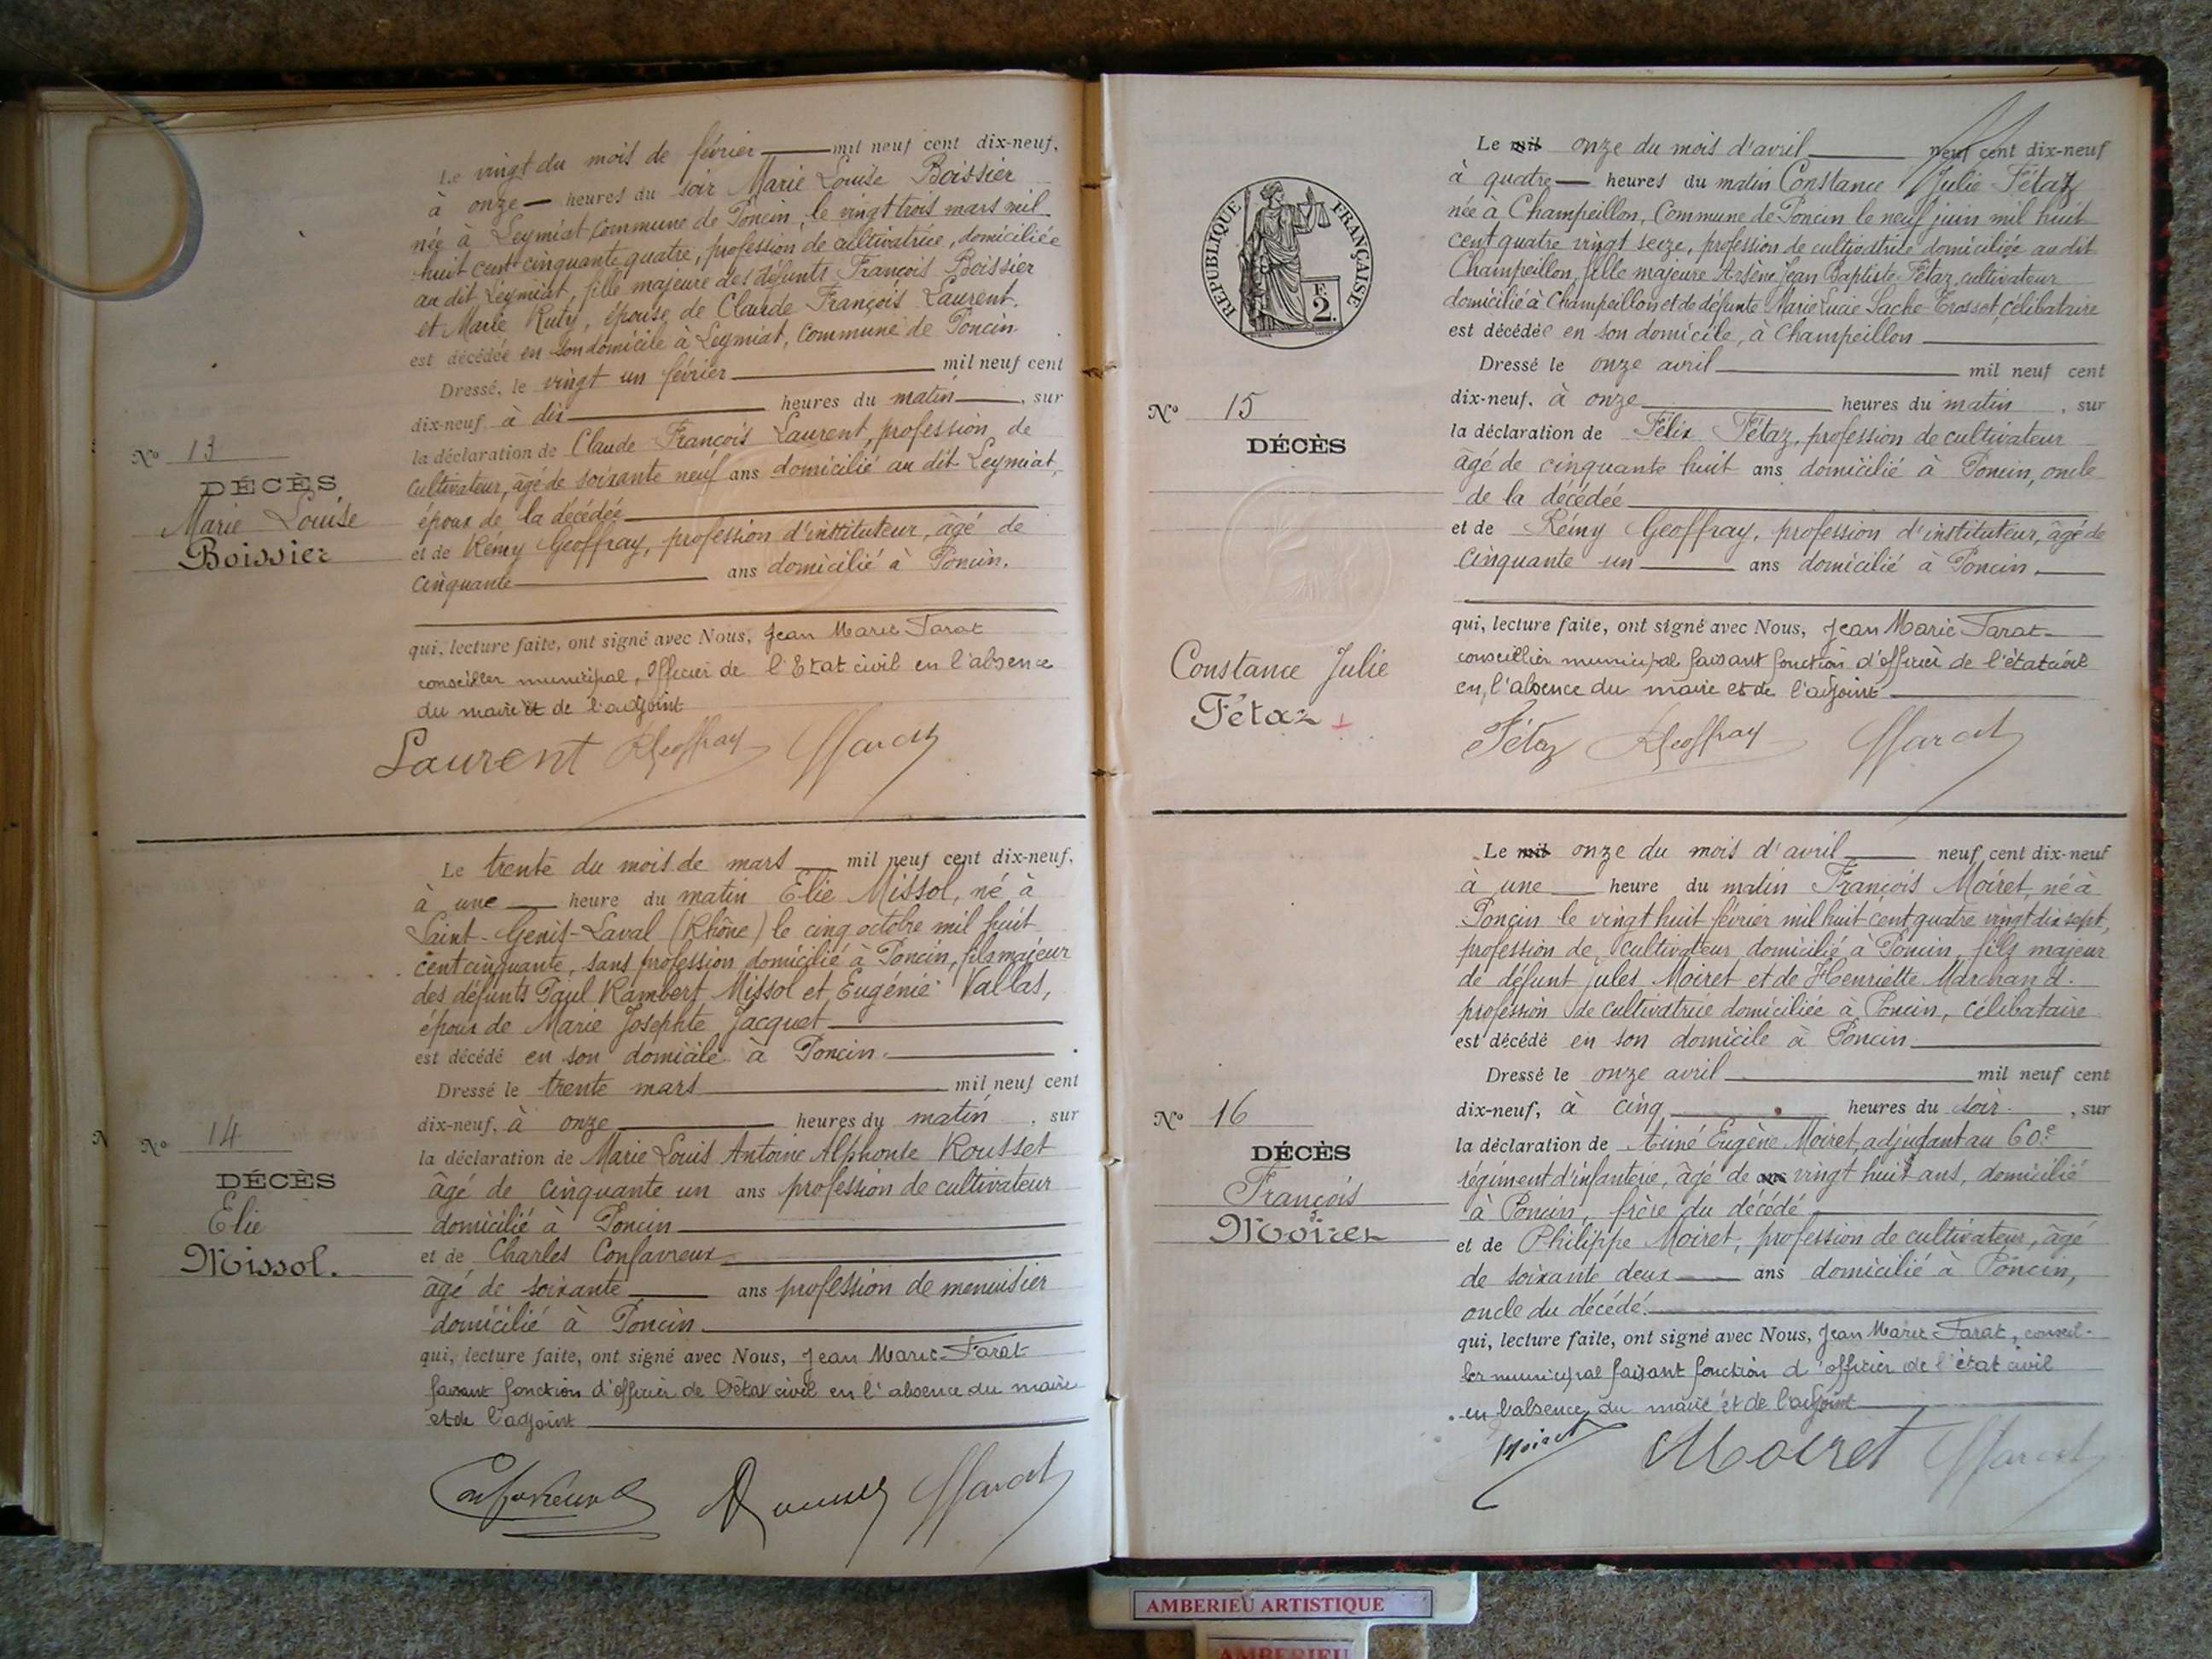 Le vingt du mois de février mil neuf cent dix-neuf,
à onze heures du soir Marie Louise Boissier
née à Leymiat, commune de Poncin, le vingt trois mars mil
huit cent cinquante quatre, profession de cultivatrice, domiciliée
au dit Leymiat, fille majeure des défunts François Boissier
et Marie Ruty, épouse de Claude François Laurent.
est décédée en son domicile à Leymiat, commune de Poncin
Dressé, le vingt un février mil neuf cent
dix-neuf à dix heures du matin, sur
la déclaration de Claude François Laurent, profession de
cultivateur, âgé de soixante neuf ans domicilié au dit Leymiat,
époux de la décédée
et de Rémy Geoffray, profession d'instituteur, âgé de
cinquante ans domicilié à Poncin.
qui, lecture faite, ont signé avec Nous, Jean Marie Farat
conseiller municipal, Officier de l'Etat civil en l'absence
du maire et de l'adjoint
Laurent RGeoffray Farat
N° 13
DÉCÈS
Marie Louise
Boissier
Le trente du mois de mars mil neuf cent dix-neuf,
à une heure du matin Elie Missol, né à
Saint-Genis-Laval (Rhône) le cinq octobre mil huit
cent cinquante, sans profession domicilié à Poncin, fils majeur
des défunts Paul Rambert Missol et Eugénie Vallas,
époux de Marie Josephte Jacquet
est décédé en son domicile à Poncin.
Dressé le trente mars mil neuf cent
dix-neuf, à onze heures du matin, sur
la déclaration de Marie Louis Antoine Alphonse Rousset
âgé de cinquante un ans profession de cultivateur
domicilié à Poncin
et de Charles Confavreux
âgé de soixante ans profession de menuisier
domicilié à Poncin.
qui, lecture faite, ont signé avec Nous, Jean Marie Farat
faisant fonction d'officier de l'état civil en l'absence du maire
et de l'adjoint
Confavreux Rousset Farat
N° 14
DÉCÈS
Elie
Missol.
RÉPUBLIQUE FRANÇAISE
F.
2.
Le mil onze du mois d'avril neuf cent dix-neuf
à quatre heures du matin Constance Julie Fétaz
née à Champeillon, Commune de Poncin le neuf juin mil huit
cent quatre vingt seize, profession de cultivatrice domiciliée au dit
Champeillon, fille majeure Arsène Jean Baptiste Fétaz cultivateur
domicilié à Champeillon et de défunte Marie Lucie Sache-Crosset célibataire
est décédée en son domicile, à Champeillon
Dressé le onze avril mil neuf cent
dix-neuf, à onze heures du matin, sur
la déclaration de Félix Fétaz, profession de cultivateur
âgé de cinquante huit ans domicilié à Poncin, oncle
de la décédée
et de Rémy Geoffray, profession d'instituteur, âgé de
cinquante un ans domicilié à Poncin.
qui, lecture faite, ont signé avec Nous, Jean Marie Farat
conseiller municipal faisant fonction d'officier de l'état civil
en l'absence du maire et de l'adjoint
Fétaz RGeoffray Farat
N° 15
DÉCÈS
Constance Julie
Fétaz
Le mil onze du mois d'avril neuf cent dix-neuf
à une heure du matin François Moiret, né à
Poncin le vingt huit février mil huit cent quatre vingt dix sept,
profession de cultivateur domicilié à Poncin, fils majeur
de défunt Jules Moiret et de Henriette Marchand.
profession de cultivatrice domiciliée à Poncin, célibataire
est décédé en son domicile à Poncin
Dressé le onze avril mil neuf cent
dix-neuf, à cinq heures du soir, sur
la déclaration de Aimé Eugène Moiret, adjudant au 60e
régiment d'infanterie, âgé de ans vingt huit ans, domicilié
à Poncin, frère du décédé
et de Philippe Moiret, profession de cultivateur, âgé
de soixante deux ans domicilié à Poncin,
oncle du décédé.
qui, lecture faite, ont signé avec Nous, Jean Marie Farat, conseil-
ler municipal faisant fonction d'officier de l'état civil
en l'absence du maire et de l'adjoint
Moiret Moiret Farat
N° 16
DÉCÈS
François
Moiret
AMBERIEU ARTISTIQUE
AMBERIEU